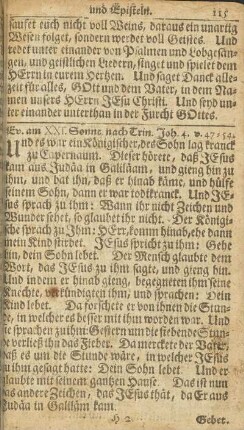 und Episteln. 115
saufet euch nicht voll Weins, daraus ein unartig
Wesen folget, sondern werdet voll Geistes. Und
redet unter einander von Psalmen und Lobgesän-
gen, und geistlichen Liedern, singet und spielet dem
HErrn in eurem Hertzen. Und saget Danck alle-
zeit für alles, GOtt und dem Vater, in dem Na-
men unsers HErrn JEsu Christi. Und seyd un-
ter einander unterthan in der Furcht GOttes.
Ev. am XXI. Sonnt. nach Trin. Joh. 4. v. 47-54.
Und es war ein Königischer, des Sohn lag kranck
zu Capernaum. Dieser hörete, daß JEsus
kam aus Judäa in Galiläam, und gieng hin zu
ihm, und bat ihn, daß er hinab käme, und hülfe
seinem Sohn, dann er war todtkranck. Und JE-
sus sprach zu ihm: Wann ihr nicht Zeichen und
Wunder sehet, so glaubet ihr nicht. Der Königi-
sche sprach zu Ihm: HErr, komm hinab, ehe dann
mein Kind stirbet. JEsus spricht zu ihm: Gehe
hin, dein Sohn lebet. Der Mensch glaubte dem
Wort, das JEsus zu ihm sagte, und gieng hin.
Und indem er hinab gieng, begegneten ihm seine
Knechte, verkündigten ihm, und sprachen: Dein
Kind lebet. Da forschete er von ihnen die Stun-
de, in welcher es besser mit ihm worden war. Und
sie sprachen zu ihm: Gestern um die siebende Stun-
de verließ ihn das Fieber. Da merckete der Vater,
daß es um die Stunde wäre, in welcher JEsus
zu ihm gesagt hatte: Dein Sohn lebet. Und er
glaubte mit seinem gantzen Hause. Das ist nun
das andere Zeichen, das JEsus thät, da Er aus
Judäa in Galiläm kam.
H 2 Gebet.